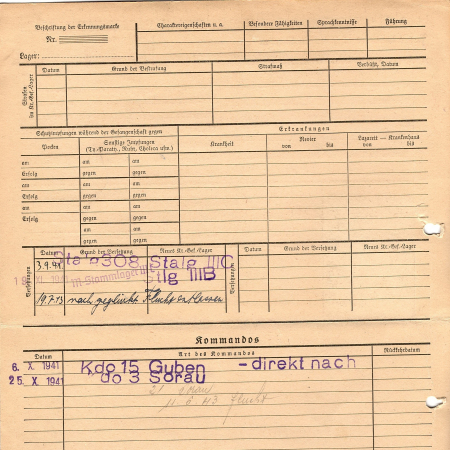 Beschriftung der Erkennungsmarke
Nr.
Lager:
Charaktereigenschaften u. a.
Besondere Fähigkeiten
Sprachkenntnisse
Führung
Strafen im Kr.-Gef.-Lager
Datum
Grund der Bestrafung
Strafmaß
Verbüßt, Datum
Schutzimpfungen während der Gefangenschaft gegen
Erkrankungen
Pocken
Sonstige Impfungen
(Ty.-Paraty., Ruhr, Cholera usw.)
Krankheit
Revier
von bis
Lazarett — Krankenhaus
von bis
am am am
Erfolg gegen gegen
am am am
Erfolg gegen gegen
am am am
Erfolg gegen gegen
am am
gegen gegen
Versetzungen
Datum
Grund der Versetzung
Neues Kr.-Gef.-Lager
Versetzungen
Datum
Grund der Versetzung
Neues Kr.-Gef.-Lager
3.9.41 308 Stalg IIIC
Stammlager Stlg IIIB
nach geglückter Flucht entlassen
Kommandos
Datum
Art des Kommandos
Rückkehrdatum
6. X. 1941 Kdo 15 Guben - direkt nach
25. X. 1941 do 3 Sorau
43 Flucht